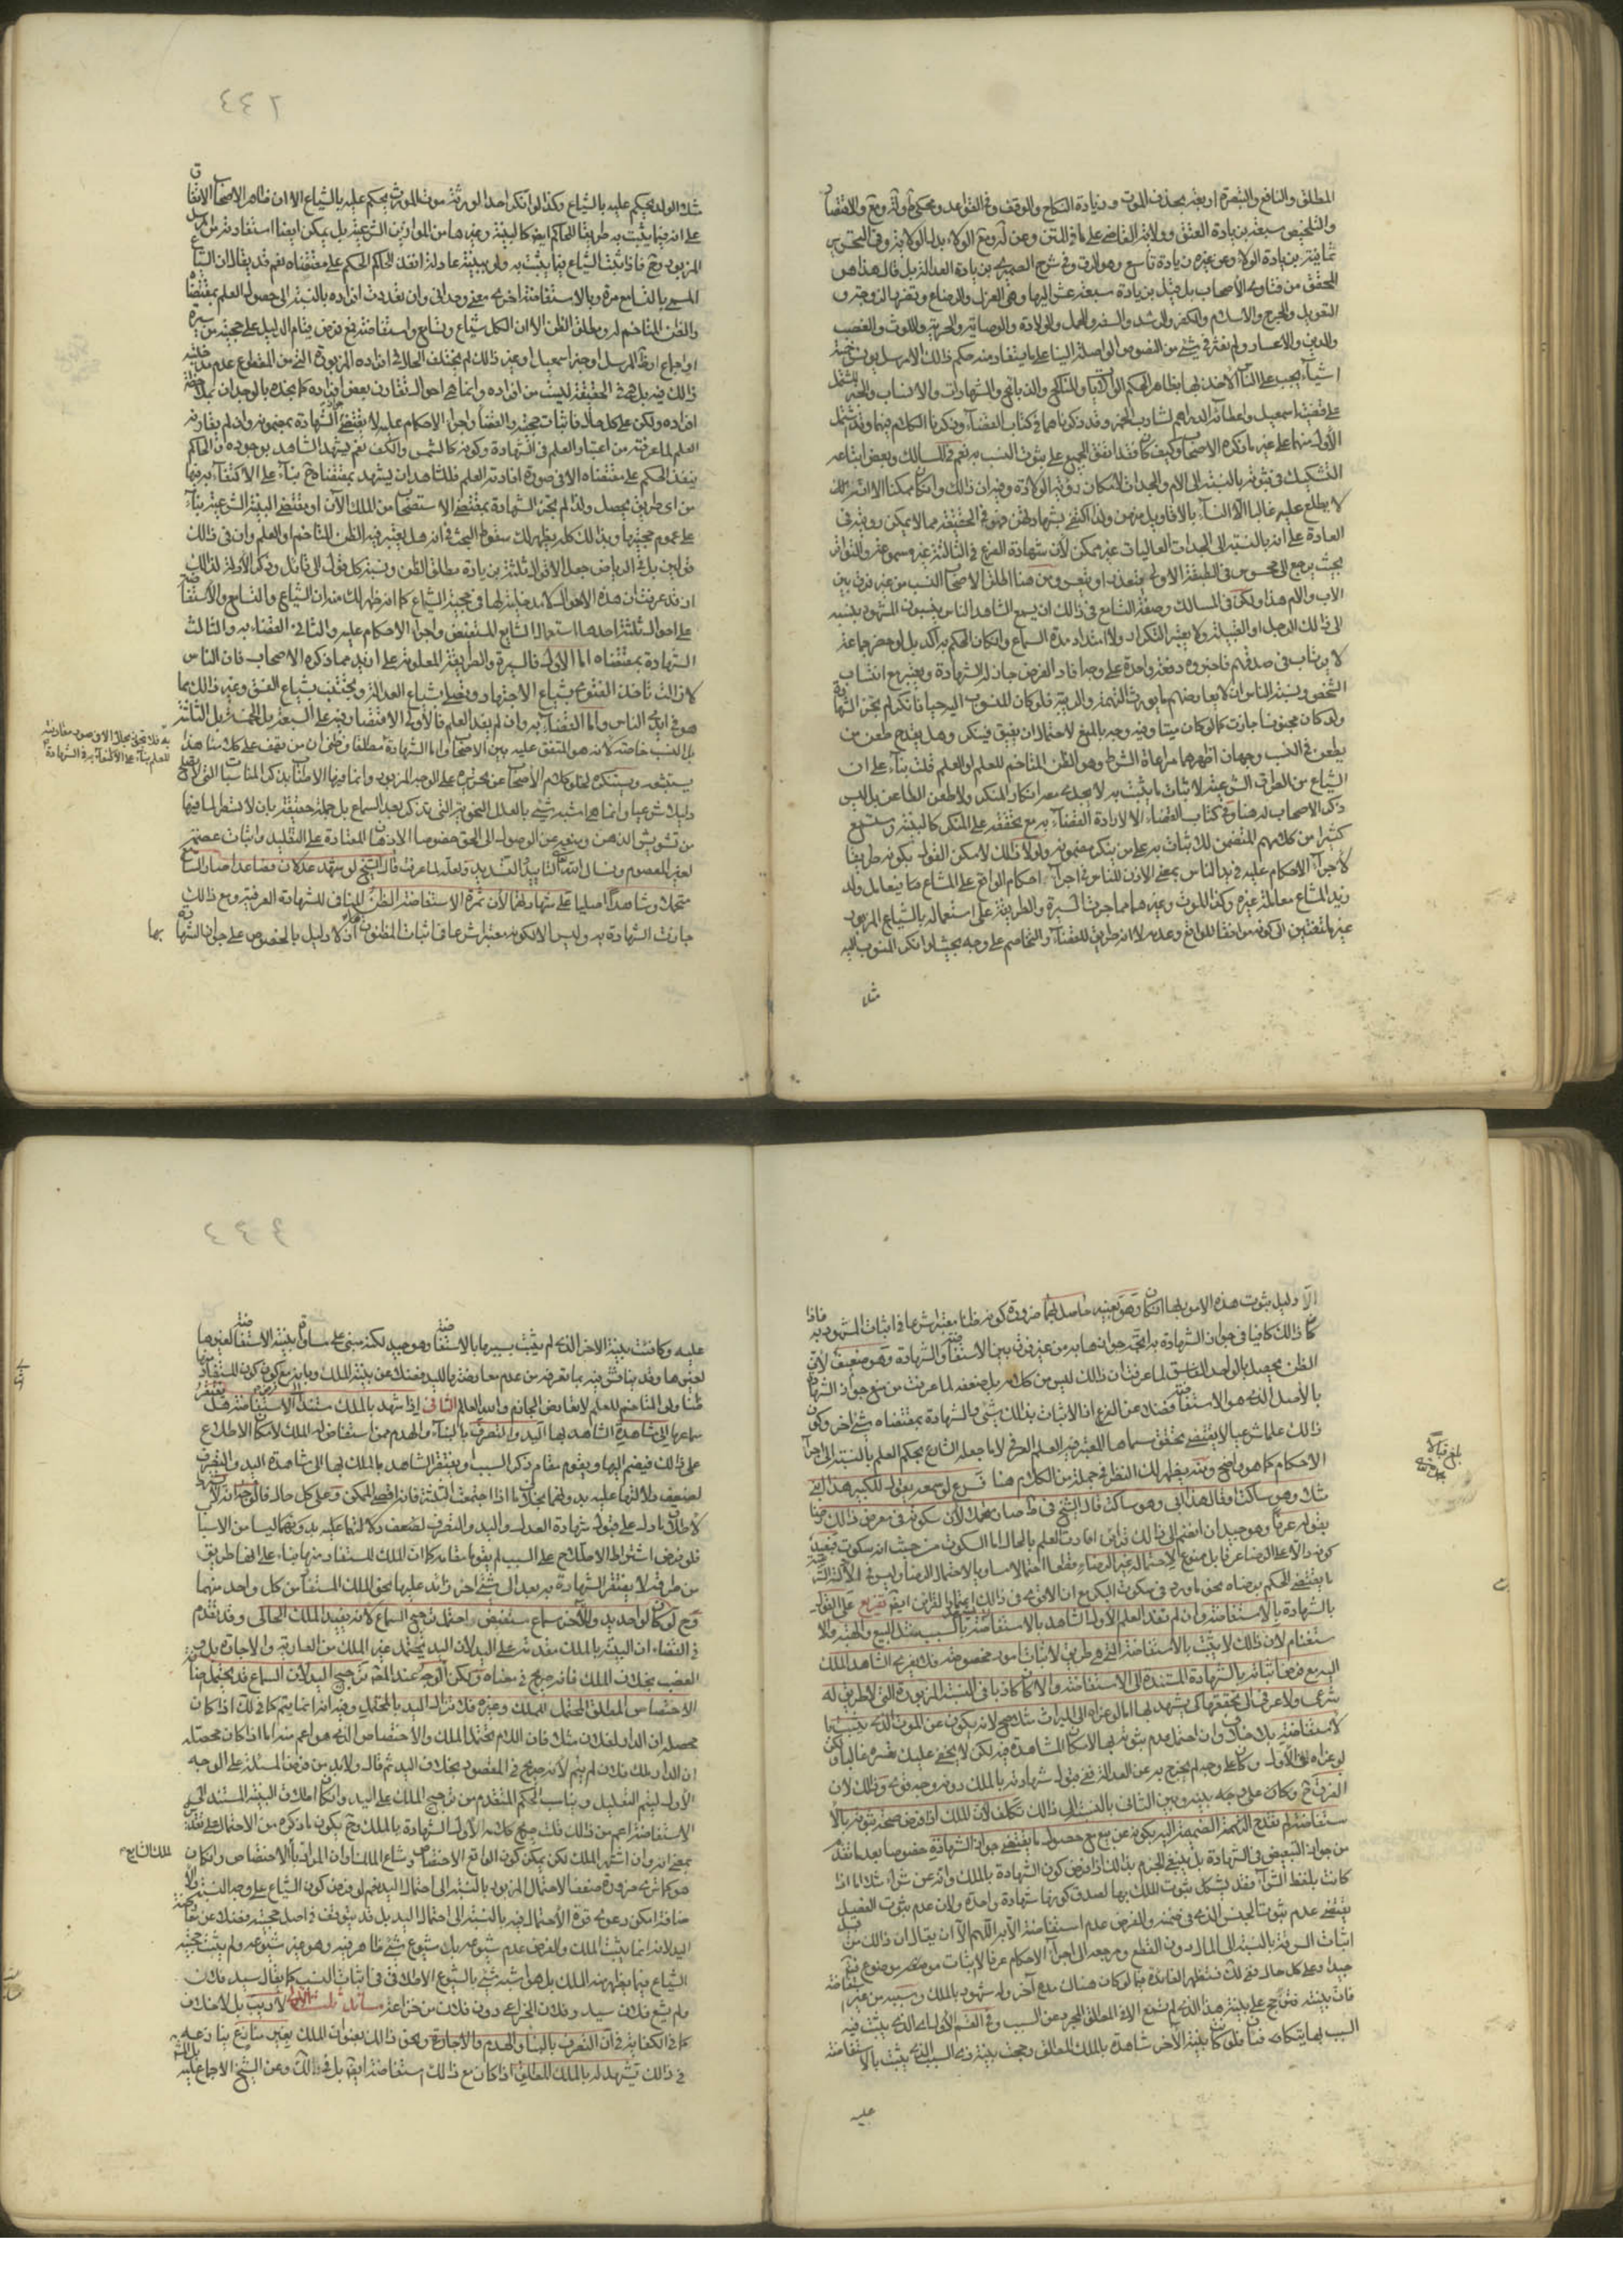 المطلق والنافع والتبصرة اربعة بحذف الموت وزيادة النكاح والوقف وفي القواعد ومحكي
والتلخيص سبعة بزيادة العتق وولاية القاضي على ما في المتن وعن آخر وضع الولاء بدل الولاية وفي التحرير
ثمانية بزيادة الولاء وعن غيره زيادة تاسع وهو الرق وفي شرح الصيمري بزيادة العدالة بل قال هذا هو
المحقق من فتاوى الاصحاب بل قيل بزيادة سبعة عشر اليها وهي العزل والرضاع وتضرر الزوجة و
التعديل والجرح والاسلام والكفر والرشد والسفه والحمل والولادة والوصاية والحرية واللوث والغصب
والدين والاعسار ولم نعثر في شيء من النصوص الواصلة الينا على ما يستفاد منه حكم ذلك الا مرسل يونس خمسة
اشياء يجب على الناس الاخذ بها بظاهر الحكم الولايات والمناكح والذبائح والشهادات والانساب والخبر المشتمل
على قضية اسمعيل واعطائه الدراهم لشارب الخمر وقد ذكرناهما في كتاب القضاء وذكرنا الكلام فيهما وقد اشتمل
الاول منهما على غير ما ذكره الاصحاب وكيف كان فقد اتفق الجميع على ثبوت النسب به نعم في المسالك وبعض اتباعه
التشكيك في ثبوته بالنسبة الى الام والجدات لامكان رؤية الولادة وفيه ان ذلك وان كان ممكنا الا انه
لا يطلع عليه غالبا الا النساء بالاقاويل من من ولذا اكتفي بشهادتهن فهو في الحقيقة مما لا يمكن رؤيته في
العادة على انه بالنسبة الى الجدات العاليات غير ممكن لان شهادة الفرع في الثالثة غير مسموعة والتواتر
بحيث يرجع الى محسوس في الطبقة الاولى متعذر او متعسر ومن هنا اطلق الاصحاب النسب من غير فرق بين
الاب والام هذا ولكن في المسالك وصفة التسامع في ذلك ان يسمع الشاهد الناس ينسبون المشهود بنسبه
الى ذلك الرجل او القبيلة ولا يعتبر التكرار ولا امتداد مدة السماع وان كان الحكم به آكد بل لو حضر جماعة
لا يرتاب في صدقهم فاخبروه دفعة واحدة على وجه افاد الغرض جاز له الشهادة ويعتبر مع انتساب
الشخص ونسبة الناس ان لا يعارضهم ما يورث التهمة والريبة فلو كان المنسوب اليه حيا فانكر لم تجز الشهادة
ولو كان مجنونا جازت كما لو كان ميتا وفيه وجه بالمنع لاحتمال ان يفيق فينكر وهل يقدح طعن من
يطعن في النسب وجهان اظهرهما مراعاة الشرط وهو الظن المتاخم للعلم او العلم قلت بناء على ان
الشياع من الطرق الشرعية لاثبات ما يثبت به لا يجدي معه انكار المنكر ولا طعن الطاعن بل ليس
ذكر الاصحاب له هنا وفي كتاب القضاء الا لارادة القضاء به مع تحققه على المنكر كالبينة و
كثيرا من كلامهم المتضمن لك ثبات به على من ينكر مضمونه ولولا ذلك لامكن القول بكونه طريقا
لاجراء الاحكام عليه في يد الناس بمعنى الاذن للناس في اجراء احكام الواقع على المشاع فيا
وزيد المشاع معاملة غيره وكذا الموت وغيرهما مما جرت السيرة والطريقة على استعماله بالشياع المزبور
غير ملتفتين الى كونه موافقا للواقع وعدمه لا انه طريق للقضاء والتخاصم على وجه بحيث لو انكر المنسوب اليه
مثلا
٢٤٤
مثلا الولد يحكم عليه بالشياع وكذا لو انكر احد الورثة موت المورث يحكم عليه بالشياع الا ان ظاهر الاصحاب الاتفاق
على انه فيما يثبت به طريقا للحاكم ايضا كالبينة وغيرها من الموازين الشرعية بل يمكن ايضا استفادته من المرسل
المزبور وح فاذا ثبت الشياع فيما يثبت به ولو ببينة عادلة انفذ الحاكم الحكم على مقتضاه نعم قد يقال ان الشياع
المسمى بالتسامع مرة وبالاستفاضة اخرى معنى وحداني وان تعددت افراده بالنسبة الى حصول العلم بمقتضاه
والظن المتاخم له ومطلق الظن الا ان الكل شياع وتسامع واستفاضة فمع فرض قيام الدليل على حجيته من سيرة
او اجماع او ظ المرسل او خبر اسمعيل او غير ذلك لم يختلف الحال في افراده المزبورة التي من المقطوع عدم مدخلية
ذلك فيه بل هي في الحقيقة ليست من افراده وانما هي احوال تقارن بعض افراده كما يجده بالوجدان بملاحظة
افراده ولكن على كل حال فاثبات حجيته والقضاء واجراء الاحكام عليه لا يقتضي جواز الشهادة بمضمونه ولو لم يقارنه
العلم لما عرفته من اعتبار العلم في الشهادة وكونه كالشمس والكف نعم يشهد الشاهد بوجوده و الحاكم
ينفذ الحكم على مقتضاه الا في صورة افادته العلم فللشاهد ان يشهد بمقتضاه ح بناء على الاكتفاء به فيها
من اي طريق يحصل ولذا لم تجز الشهادة بمقتضى الاستصحاب من الملك الآن او مقتضى البينة الشرعية بناء
على عموم حجيتها وبذلك كله يظهر لك سقوط البحث في انه هل يعتبر فيه الظن المتاخم او العلم وان في ذلك
قولين بل في الرياض جعل الاقوال ثلثة بزيادة مطلق الظن ونسبة كل قول الى قائل وذكر الادلة لذلك
اذ قد عرفت ان هذه الاحوال لا مدخلية لها في حجية الشياع كما انه ظهر لك منه ان الشياع والتسامع والاستفاضة
على احوال ثلثة احدها استعمال الشايع المستفيض واجراء الاحكام عليه والثاني القضاء به والثالث
الشهادة بمقتضاه اما الاول فالسيرة والطريقة المعلومة على ازيد مما ذكره الاصحاب فان الناس
لا زالت تاخذ الفتوى بشياع الاجتهاد وتصلي بشياع العدالة وتجتنب بشياع الفسق وغير ذلك مما
هو في ايدي الناس واما القضاء به وان لم يفد العلم فالاولى الاقتصار فيه على السبعة بل الخمسة بل الثلثة
بل النسب خاصة لانه هو المتفق عليه بين الاصحاب واما الشهادة به مطلقا وظني ان من يقف على كلامنا هذا
يستبعده ويستنكره لخلو كلام الاصحاب عن تحريره على الوجه المزبور وانما فيها الاطناب بذكر المناسبات التي لا تصلح
دليلا شرعيا وانما هي اشبه شيء بالعلل النحوية التي تذكر بعد السماع بل جملة حقيقة بان لا تسطر لما فيها
من تشويش الذهن وبتغير عن الوصول الى الحق خصوصا الاذهان المعتادة على التقليد واثبات عصمة
لغير المعصوم ونسال الله التاييد والتسديد ولعله لما عرفت قال الشيخ لو شهد عدلان فصاعدا صار السامع
متحملا وشاهدا اصليا لا شاهدا على شهادتهما لان ثمرة الاستفاضة الظن المنافي للشهادة العرفية ومع ذلك
جازت الشهادة به وليس الا لكونه معتبرا شرعا فاثبات المظنون اذ لا دليل بالخصوص على جواز الشهادة
بها
به فلا تجوز بحال الا في صورة مقارنته
للعلم بناء على الاكتفاء به في الشهادة
الا دليل ثبوت هذه الامور بها وهو بعينه حاصل لها ضرورة كونه ظنا معتبرا شرعا في اثبات المشهود به فاذا
كان ذلك كافيا في جواز الشهادة به اتجه جوازها به من غير فرق بين الاستفاضة والشهادة وهو ضعيف لان
الظن يحصل بالواحد الفاسق لما عرفت ان ذلك ليس من كلامه بل لضعفه لما عرفت من منع جواز الشهادة
بالاصل الذي هو الاستفاضة فضلا عن الفرع اذ الاثبات بذلك شيء والشهادة بمقتضاه شيء آخر وكون
ذلك علما شرعيا لا يقتضي تحقق مسماها المعتبر فيه العلم العرفي لا ما جعله الشارع بحكم العلم بالنسبة الى اجراء
الاحكام كما هو واضح ومنه يظهر لك النظر في جملة من الكلام هنا فرع لو سمعه يقول للكبير هذا ابني
مثلا وهو ساكت او قال هذا ابي وهو ساكت قال الشيخ في ط صار متحملا لان سكوته في معرض ذلك رضا
بقوله عرفا وهو جيد ان انضم الى ذلك قرائن افادت العلم بالحال اما السكوت من حيث انه سكوت فيفيد
كونه دالا على الرضا عرفا بل ممنوع لاحتماله غير الرضا
ما يقتضي الحكم برضاه نحو ما ورد في سكوت البكر مع ان الاقوى في ذلك اعتبار القرائن ايضا تفريع على القول
بالشهادة بالاستفاضة وان لم تفد العلم الاولى الشاهد بالاستفاضة بالسبب مثل البيع والهبة والا
ستغنام لان ذلك لا يثبت بالاستفاضة التي هي طريق لاثبات امور مخصوصة فلا يعزي الشاهد الملك
اليه مع فرض اثباته بالشهادة المستندة الى الاستفاضة والا كان كاذبا في النسبة المزبورة التي لا طريق له
شرعي ولا عرفي الى تحققها كي يشهد بها اما لو عزاه الى الميراث مثلا صح لانه يكون عن الموت الذي يثبت با
لاستفاضة بلا خلاف وان احتمل عدم ثبوته بها لامكان المشاهدة فيه لكن لا يخفى عليك تعسره غالبا ولكن
لو عزاه الى الاول وكان على وجه لم يخرج به عن العدالة ففي قبول شهادته بالملك دونه وجه قوي وذلك لان
الفرق ح وكان على وجه بينه وبين الثاني بالنسبة الى ذلك تكلف لان الملك اذا فرض صحة ثبوته بالا
ستفاضة لم تقدح الضميمة اليه بكونه عن بيع مع حصول ما يقتضي جواز الشهادة خصوصا بعدما تقدم
من جواز التبعيض في الشهادة بل ينبغي الجزم بذلك اذا فرض كون الشهادة بالملك وانه عن شراء مثلا اما اذا
كانت بلفظ الشراء فقد يشكل ثبوت الملك بها لصدق كونها شهادة واحدة ولان عدم ثبوت الفصل
يقتضي عدم ثبوت الجنس الذي في ضمنه والفرض عدم استفاضة الا به اللهم الا ان يقال ان ذلك مثل
اثبات السرقة بالنسبة الى المال دون القطع ومرجعه الى اجراء الاحكام عرفا لا اثبات موضوع فتأمل
جيدا وعلى كل حال ففي لك تظهر الفائدة فيما لو كان هناك مدع آخر وله شهود بالملك وسببه من غير استفاضة
فان بينته ترجح على بينة هذا الذي لم يسمع الا في المطلق المجرد عن السبب وفي القسم الاول الذي يثبت فيه
السبب بها يتكافآن فلو كان بينة الآخر شاهدة بالملك المطلق رجحت بينة ذي السبب الذي يثبت بالاستفاضة
عليه
٤٤٤
عليه وكانت بينة الآخر الذي لم يثبت سببها بالاستفاضة وهو جيد لكنه مبني على مساواة بينة الاستفاضة لغيرها
لغيرها وقد يناقش فيه بما تعرفه من عدم معارضته باليد فضلا عن بينة الملك
ظنا ولو المتاخم للعلم لا يعارض الجازم والله العالم الثاني اذا شهد بالملك مستندا الى الاستفاضة هل يفتقر
سماعها الى مشاهدة الشاهد بها اليد والتصرف بالبناء والهدم ممن استفاض له الملك لامكان الاطلاع
على ذلك فيضم اليها ويقوم مقام ذكر السبب او يفتقر الشاهد بالملك بها الى مشاهدة اليد والتصرف
لضعف دلالتها عليه بدونهما بخلاف ما اذا اجتمعت الثلثة فانه اقصى الممكن وعلى كل حال فالوجه انه لا
لاطلاق ما دل على قبول شهادة العدل واليد والتصرف لضعف دلالتهما عليه بدونهما ليسا من الاسباب
فلو فرض اشتراط الاطلاع على السبب لم يقوما مقامه كما ان الملك المستفاد منها بناء على انها طريق
من طرقه لا يفتقر الشهادة به بعد الى شيء آخر زائد عليها نحو الملك المستفاد من كل واحد منهما
وح لو كان لواحد يد وللآخر سماع مستفيض احتمل ترجيح السماع لانه يفيد الملك الحالي وقد تقدم
في القضاء ان البينة بالملك مقدمة على اليد لان اليد تحتمل غير الملك من العارية والاجارة بل
الغصب بخلاف الملك فانه صريح في معناه ولكن الوجه عند المصنف ترجيح اليد لان السماع قد يحتمل ايضا
الاختصاص المطلق المحتمل للملك وغيره فلا تزال اليد بالمحتمل وفيه انه انما يتم كما في لك اذا كان
محصله ان الدار لفلان مثلا فان اللام تحتمل الملك والاختصاص الذي هو اعم منه اما اذا كان محصله
ان الدار ملك فلان لم يتم لانه صريح في المقصود بخلاف اليد ثم قال ولابد من فرض المسألة على الوجه
الاول ليتم التعليل ويناسب الحكم المتقدم من ترجيح الملك على اليد وان كان اطلاق البينة المستندة الى
الاستفاضة اعم من ذلك قلت صريح كلامه الاول الشهادة بالملك وح يكون ما ذكره من الاحتمال على تقديره
بمعنى انه وان اشتهر الملك لكن يمكن كون الواقع الاختصاص وشاع الملك او ان المراد به الاختصاص وان كان
هو كما ترى ضرورة ضعف الاحتمال المزبور بالنسبة الى احتمال اليد نعم لو فرض كون الشياع على وجه النسبة والا
ضافة امكن دعوى قوة الاحتمال فيه بالنسبة الى احتمال اليد بل قد يتوقف في اصل حجيته فضلا عن معارضة
اليد لانه انما يثبت الملك والفرض عدم شيوعه بل شيوع شيء ظاهر فيه وهو غير شيوعه ولم يثبت حجية
الشياع فيما يظهر منه الملك بل هو اشبه شيء بالشيوع الاطلاقي في اثبات النسب كما يقال سيد فلان
ولم يشع فلان سيد وفلان الخزاعي دون فلان من خزاعة مسائل ثلث الاولى لا ريب بل لا خلاف
كما في الكفاية في ان التصرف بالبناء والهدم والاجارة ونحو ذلك بعنوان الملك بغير منازع ينازعه
في ذلك يشهد له بالملك المطلق اذا كان مع ذلك استفاضة ايضا بل في لك وعن الشيخ الاجماع عليه
الملك الشايع